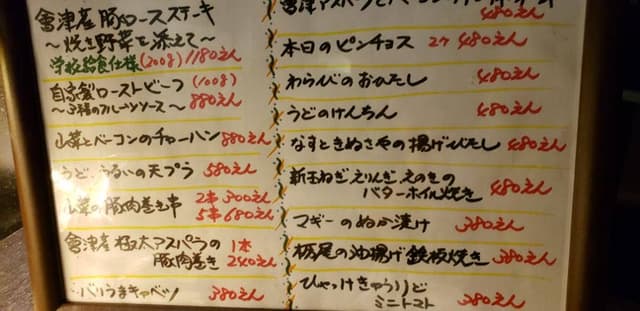 會津産豚ロースステーキ
～焼き野菜を添えて～
学校給食仕様(200g) 1180えん
自家製ローストビーフ(100g)
のフルーツソース～ 880えん
山菜とベーコンのチャーハン 880えん
うど、うるいの天プラ 580えん
山菜の豚肉巻き串 2本 300えん
5本 680えん
會津産極太アスパラの 1本
豚肉巻き 240えん
バリうまキャベツ 380えん
會津アスパラと 480えん
本日のピンチョス 2ケ 480えん
わらびのおひたし 480えん
うどのけんちん 480えん
なすときぬさやの揚げびたし 480えん
新玉ねぎ、えりんぎ、えのきの
バターホイル焼き 480えん
マギーのぬか漬け 380えん
栃尾の油揚げ鉄板焼き 380えん
ひゃっけきゅうりと
ミニトマト 380えん